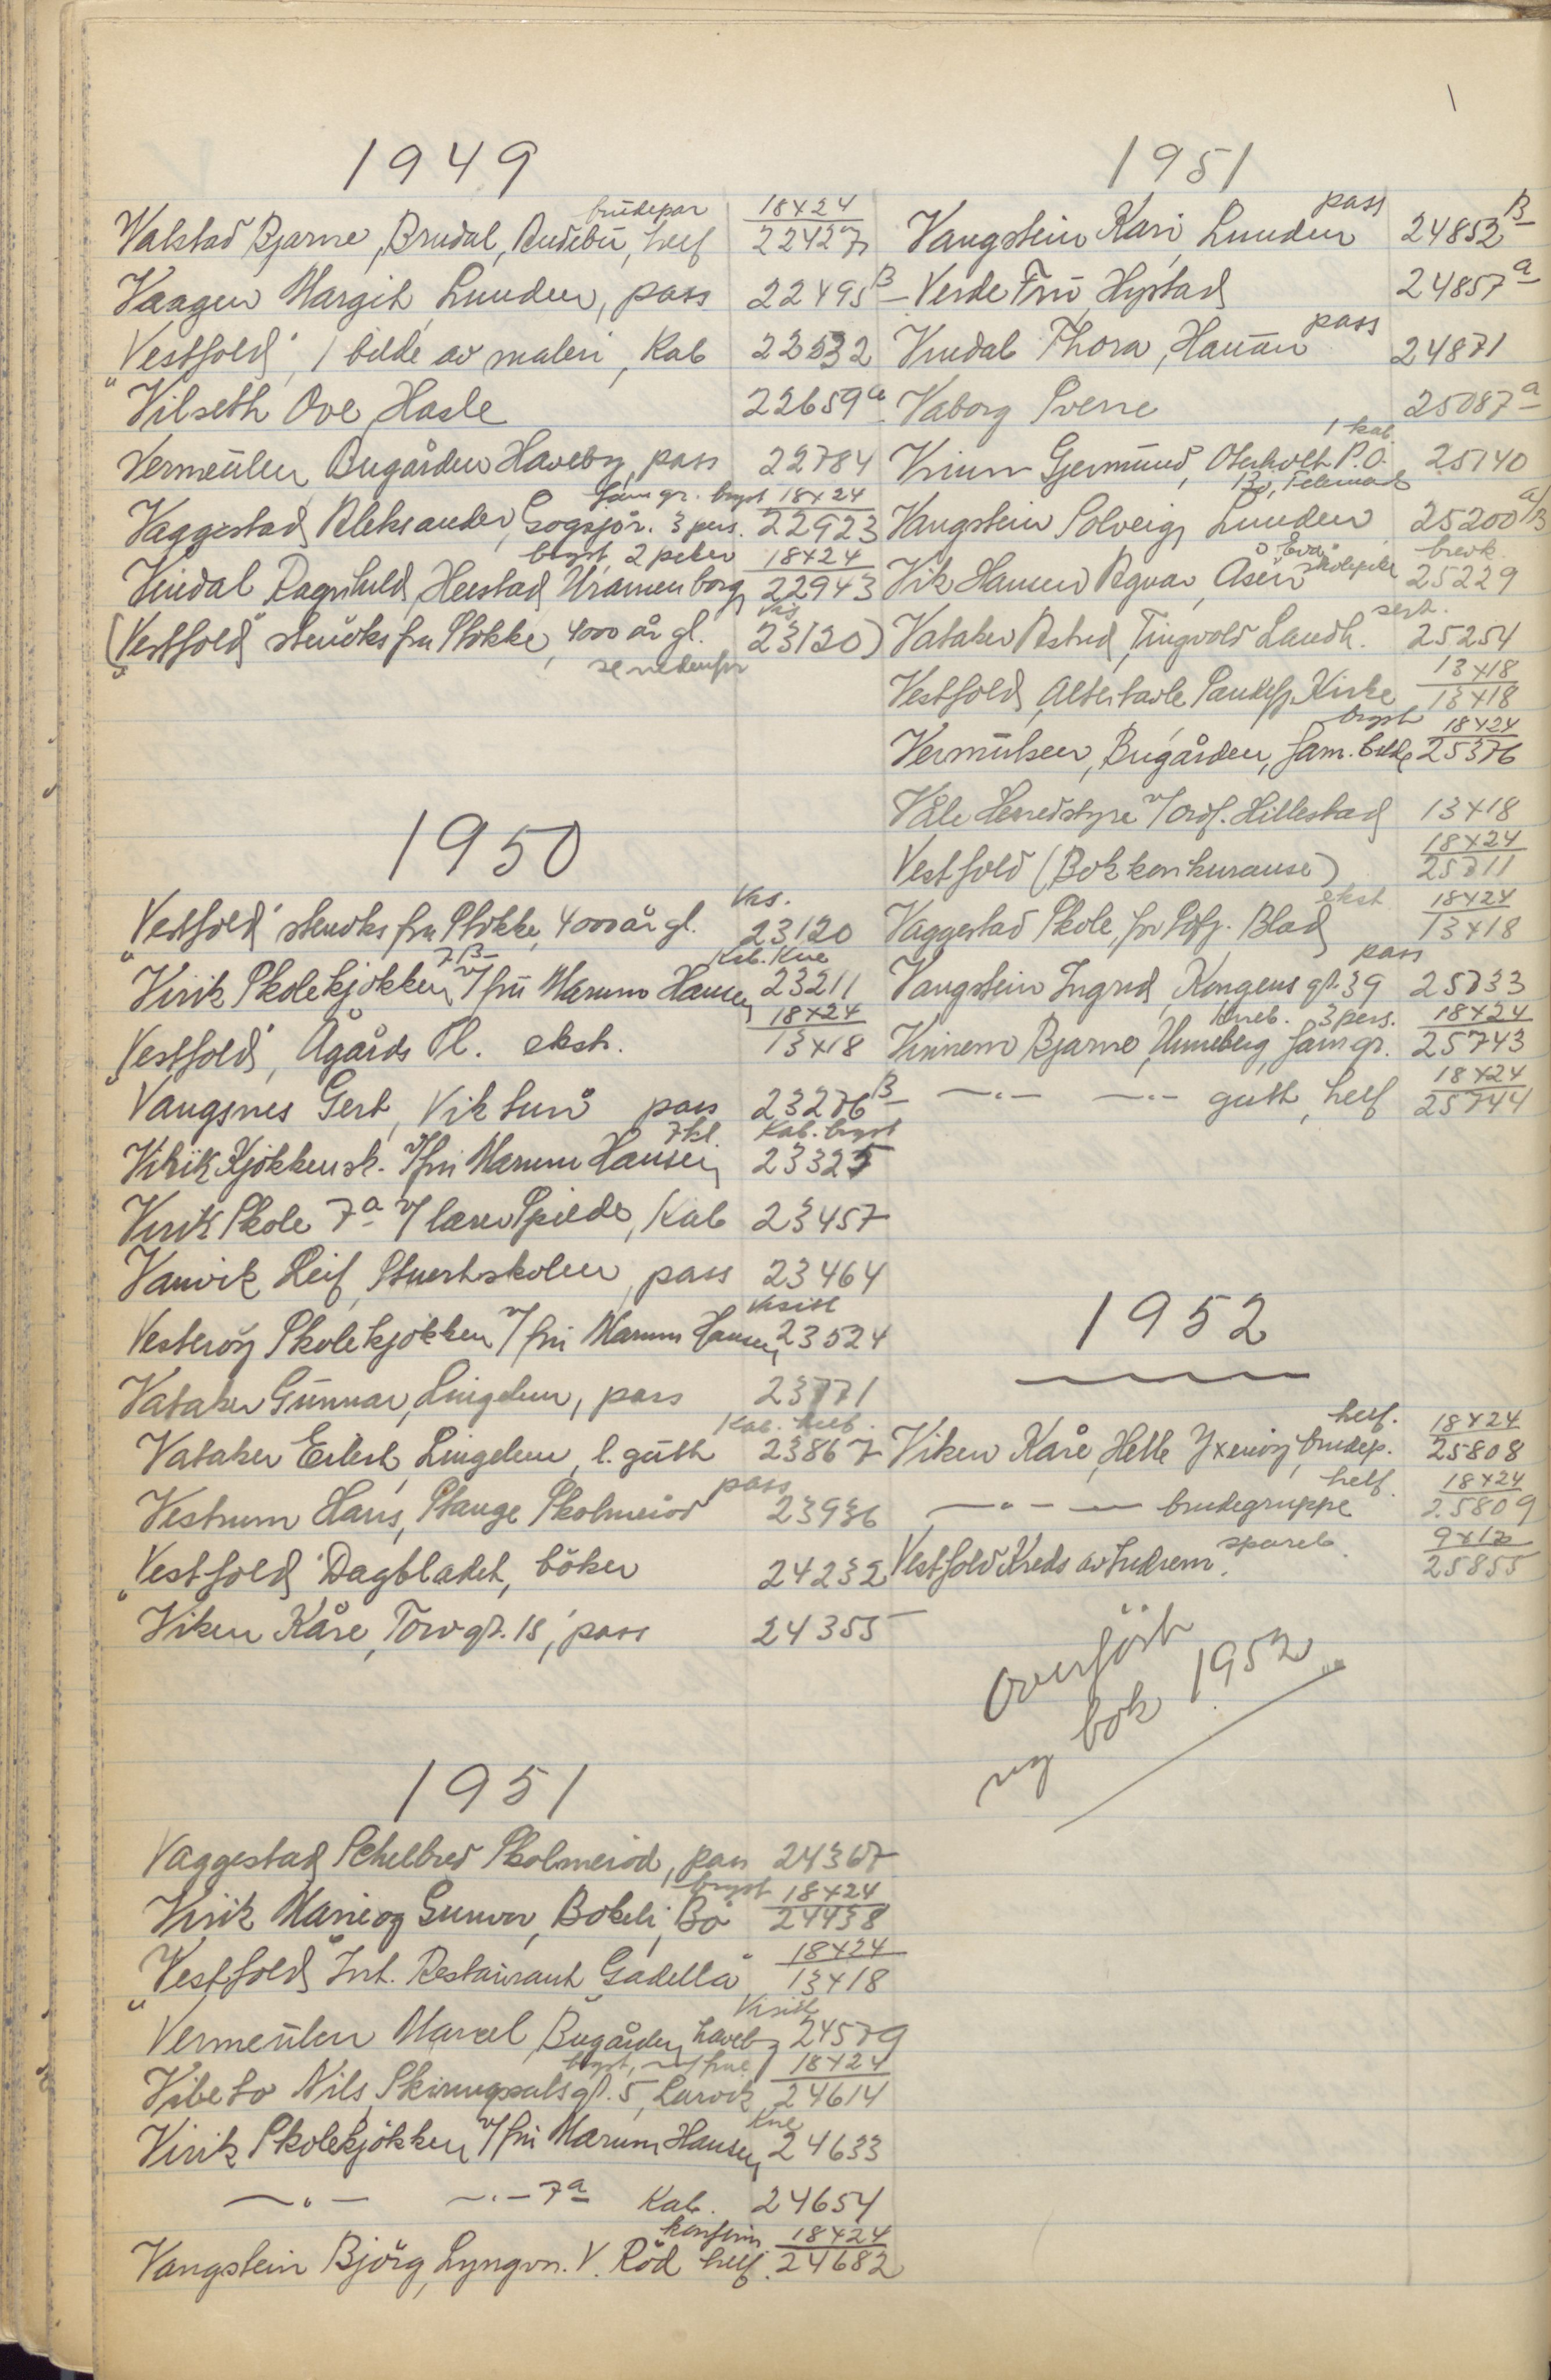 1949
Valstad Bjarne, Brudal, Andebu, brudepar helf 18x24 22427
Vaagen Margit, Lunden, pass 22495 B
"Vestfold", 1 bilde av maleri, Kab 22532
Vilseth Ove, Hasle 22659 a
Vermeulen, Bugården Haveby, pass 22784
Vaggestad Aleksander, Gogsjør. fam gr. bryst 3 pers. 18x24 22923
Vindal Ragnhild, Heistad, Uranienborg bryst, 2 piker 18x24 22943
("Vestfold" stenøks fra Stokke, 4000 år gl. Vis 23120)
se nedenfor
1950
"Vestfold" stenøks fra Stokke, 4000 år gl. Vis. 23120
Virik Skolekjøkken 7B v/ fru Marum Hansen Kab. Kne 23211
"Vestfold", Ågårds Pl. ekst. 18x24 13x18
Vangsnes Gert, Vik tun pass 23276 B
Virik Kjøkkensk. v/ fru Marum Hansen 7 kl. Kab. bryst 23325
Virik Skole 7a v/ lærer Spilde, Kab 23457
Vauvik Leif, Stuertskolen, pass 23464
Vesterøy Skolekjøkken v/ fru Marum Hansen Visitt 23524
Vataker Gunnar, Lingelem, pass 23771
Vataker Eilert, Lingelem, l. gutt Kab. helf. 23867
Vestrum Hans, Stange Skolmerød pass 23936
"Vestfold" Dagbladet, bøker 24232
Viken Kåre, Torvgt. 18, pass 24355
1951
Vaggestad Schelbred Skolmerød, pass 24367
Virik Marie og Gunvor, Bokeli, Bø bryst 18x24 24438
"Vestfold" Int. Restaurant "Gadella" 18x24 13x18
Vermeulen Marcel, Bugården Haveby Visitt 24579
Vibeto Nils, Skiringssalsgt. 5, Larvik bryst, m/ frue 18x24 24614
Virik Skolekjøkken v/ fru Marum Hansen Kne 24633
— " — — " — 7a Kab. 24654
Vangstein Bjørg, Lyngvn. V. Rød konfirm. helf. 18x24 24682
1951
Vangstein Kari, Lunden pass 24852 B
Verde Fru, Hystad 24857 a
Vindal Thora, Hauan pass 24871
Vaborg Sverre 25087 a
Vrium Gjermund, Oterholt P.O. Bø, Telemark 1 kab. 25140
Vangstein Solveig, Lunden 25200 a/B
Vik Hansen Agnar, Åsen "Eva" skolepike brevk. 25229
Vataker Astrid, Tingvold Landh. sert. 25254
Vestfold, Altertavle Sandefj. Kirke 13x18 13x18
Vermeulen, Bugården, fam. bilde bryst 18x24 25376
Våle Herredstyre v/ Ordf. Hillestad 13x18
Vestfold (Bokkonkuranse) 18x24 25711
Vaggestad Skole, for Sdfj. Blad ekst. 18x24 13x18
Vangstein Ingrid, Kongens gt. 39 pass 25733
Vinnem Bjarne, Unneberg, fam gr. kneb. 3 pers. 18x24 25743
— " — — " — gutt, helf 18x24 25744
1952
Viken Kåre, Helle Yxenøy, brudep. helf. 18x24 25808
— " — — brudegruppe helf. 18x24 25809
Vestfold Kreds av Indrem. spareb. 9x12 25855
Overført
ny bok 1952